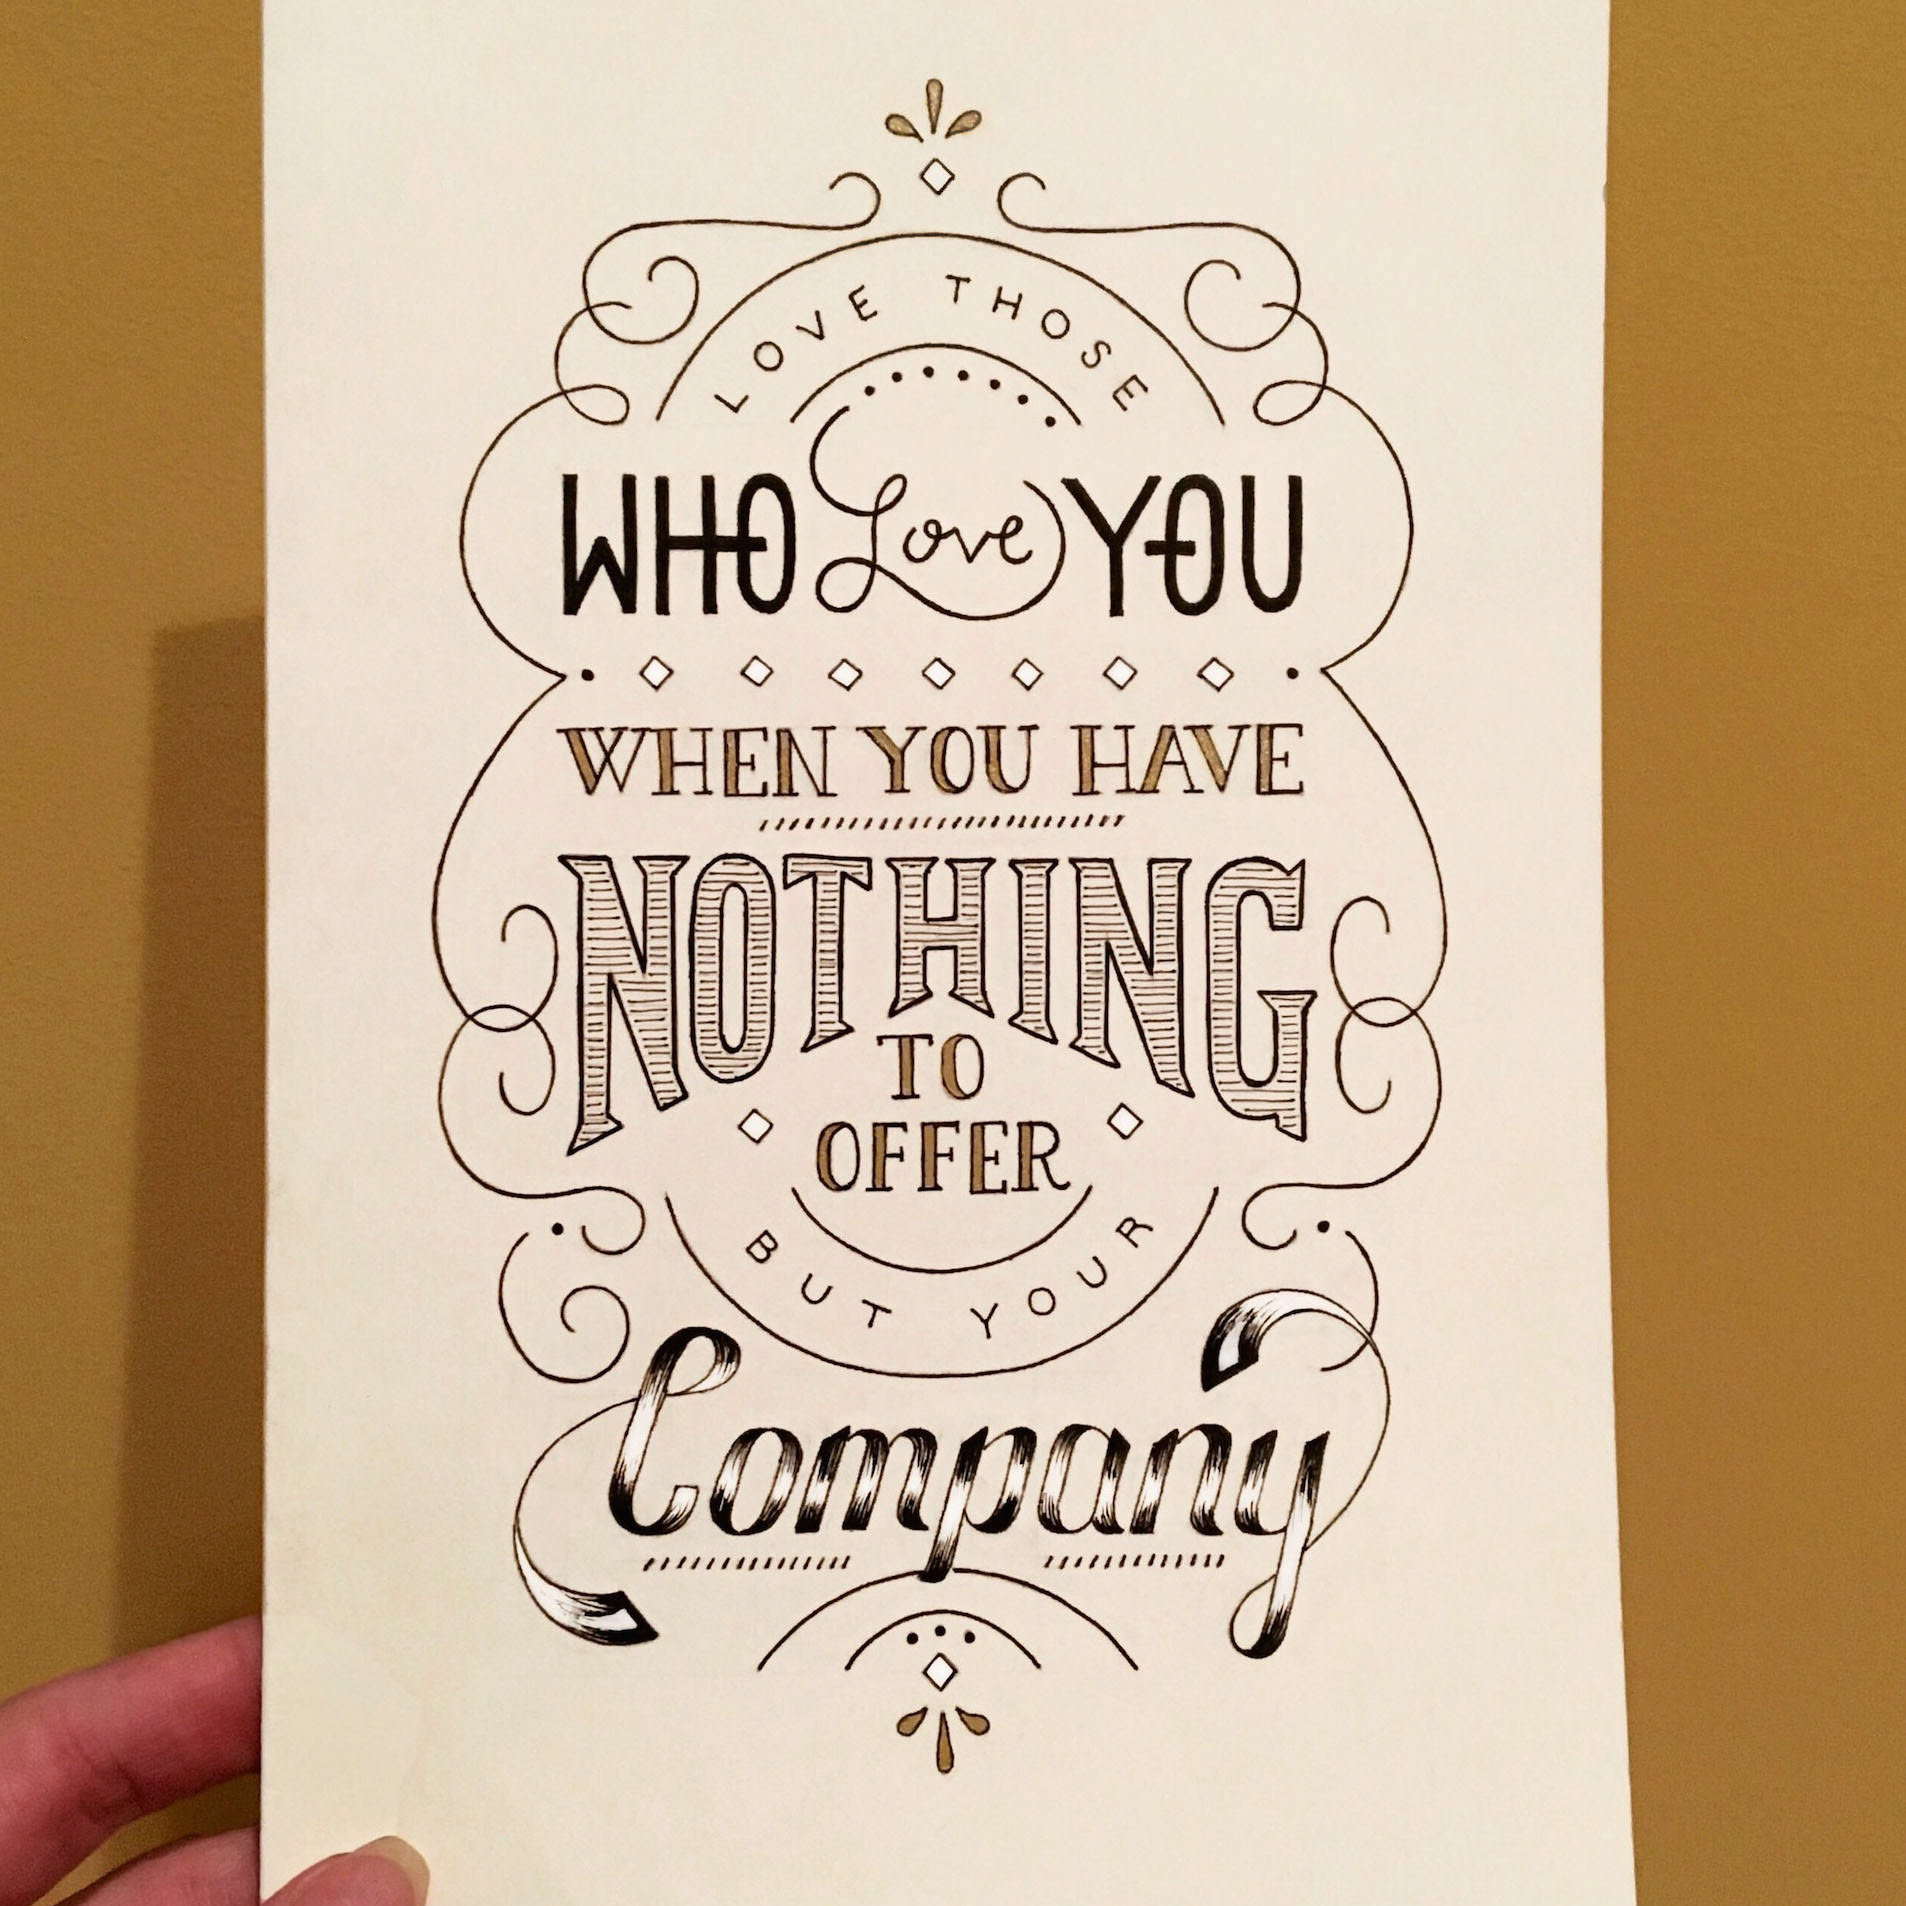 LOVE THOSE
WHO Love YOU
WHEN YOU HAVE
NOTHING
TO
OFFER
BUT YOUR
Company